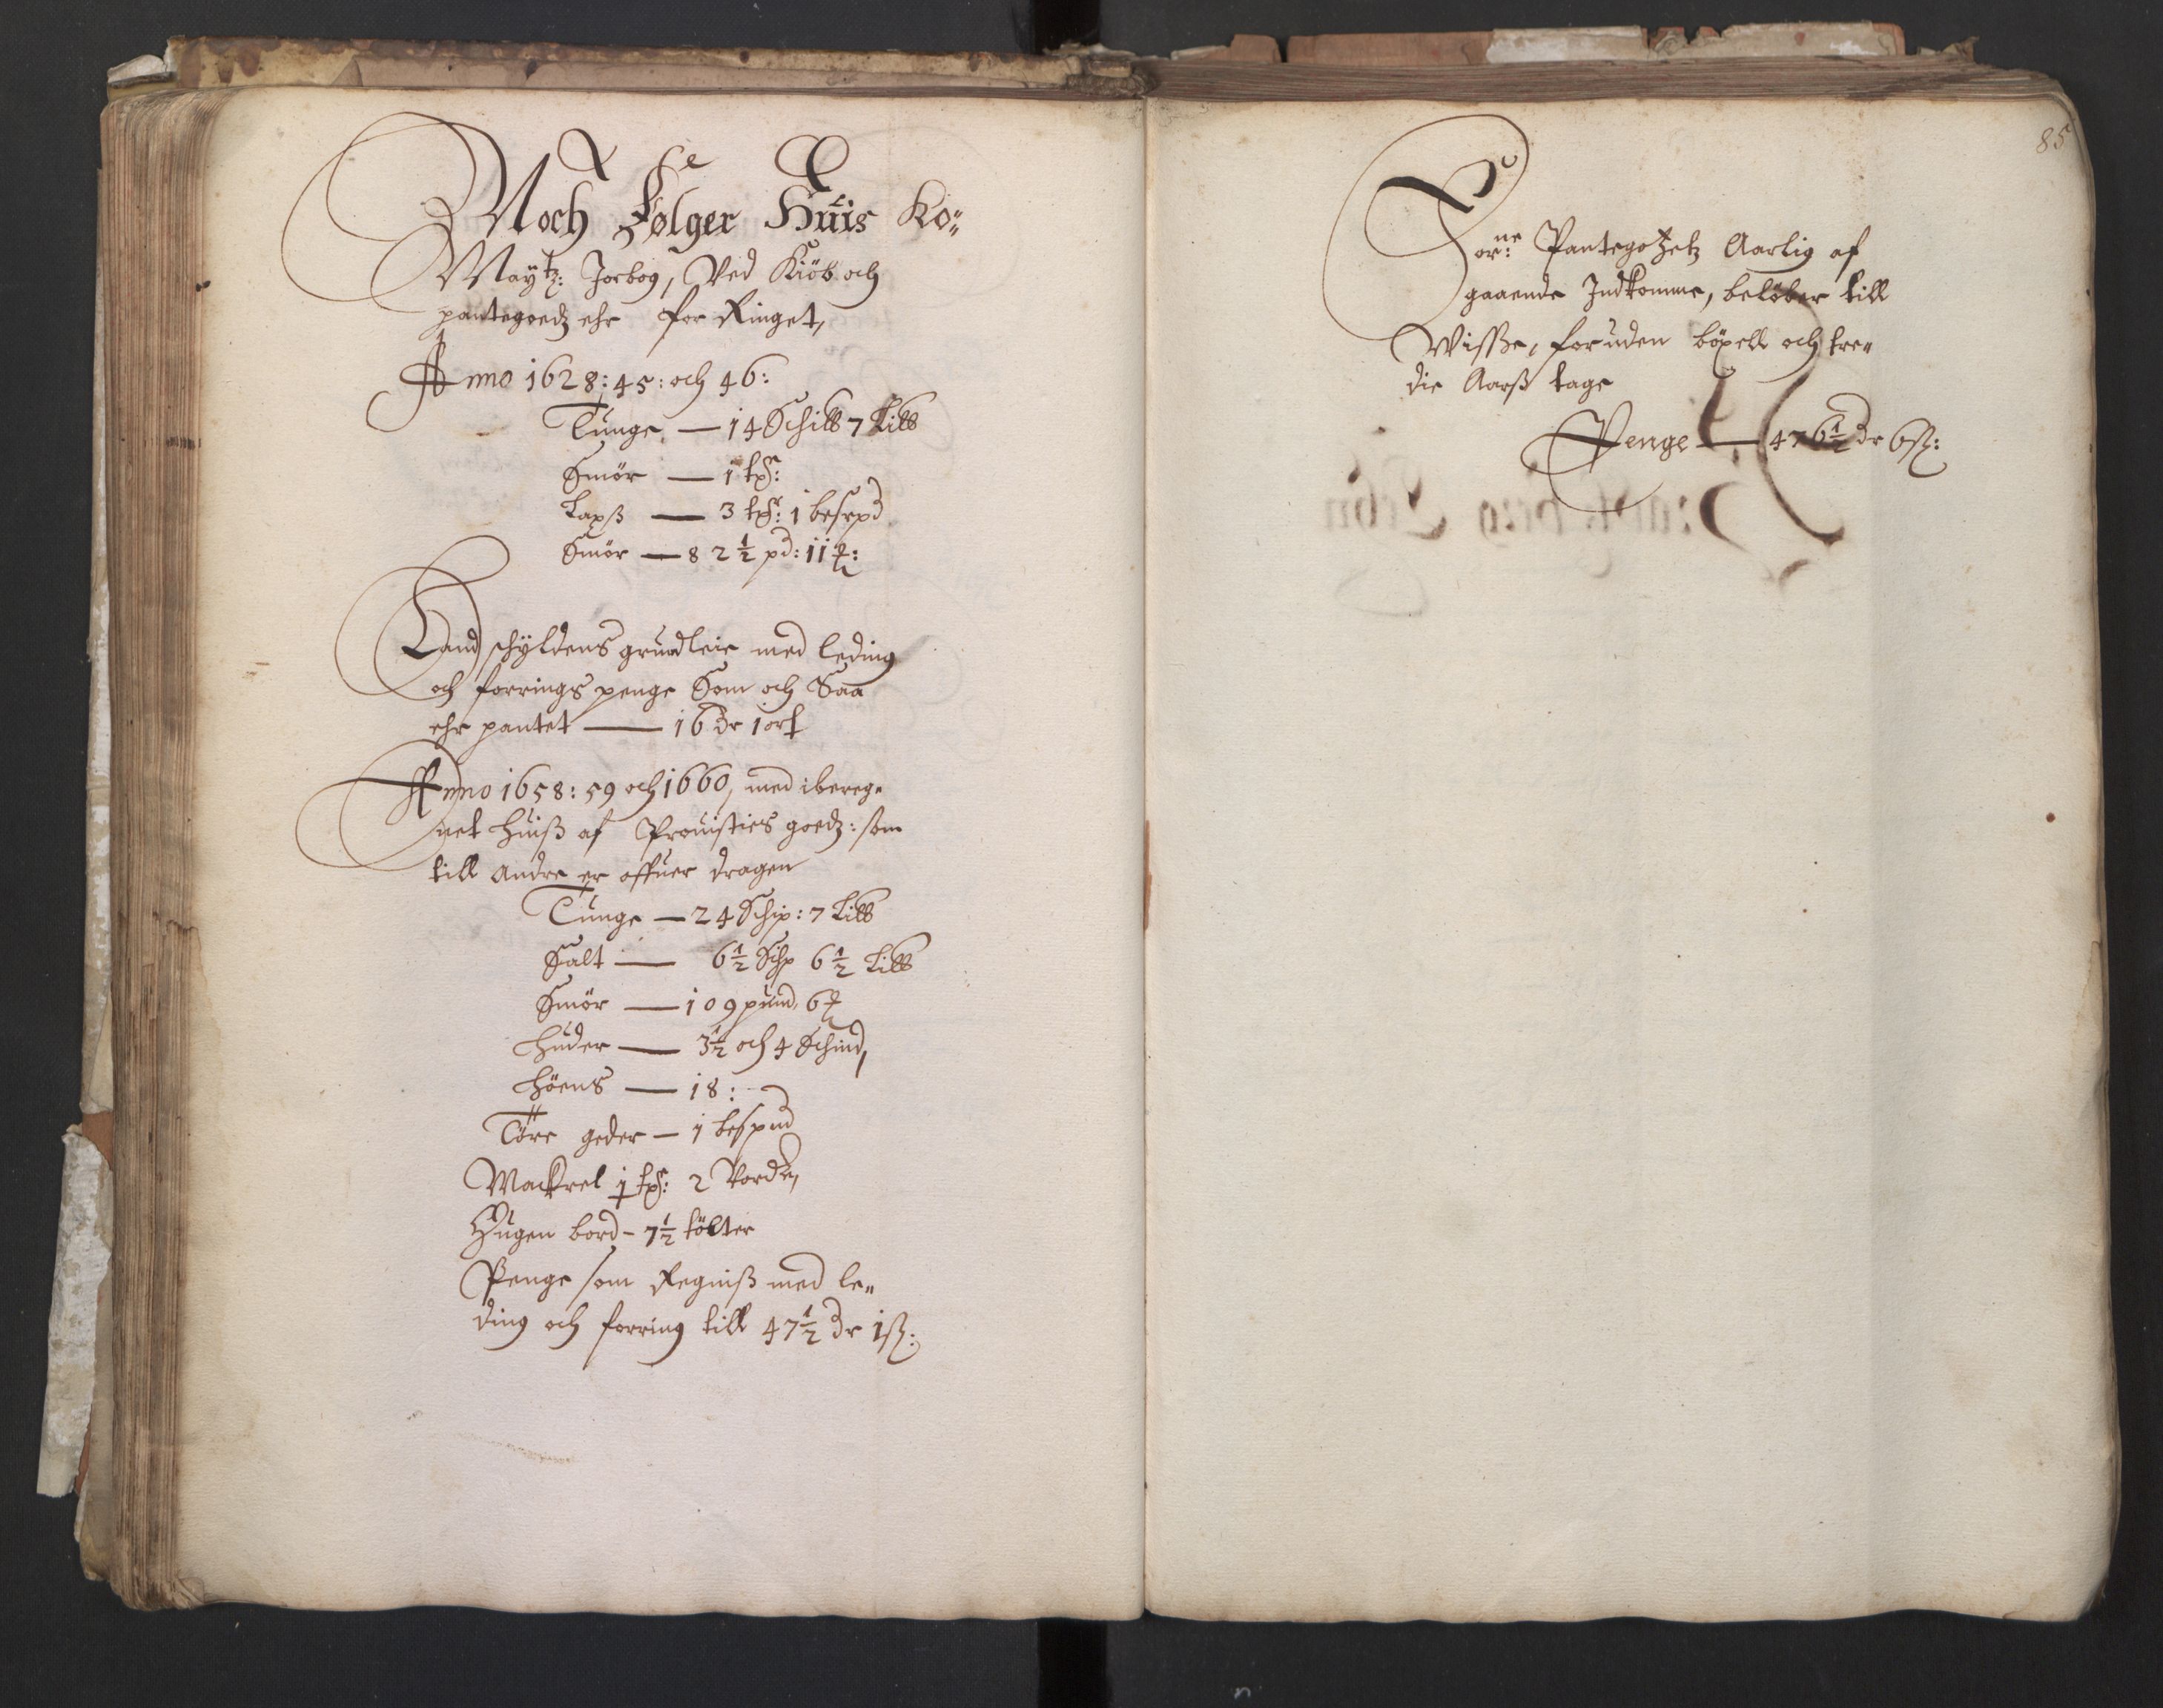 Noch Følger Huis Ko=
Maytz: Jorbog, Ved Kiöb och
pantegoedz ehr for Ringet,
Anno 1628: 45: och 46:
Tunge — 14 Schilb 7 Lilb
Smör — 1 tꝭ:
Laxß — 3 tꝭ: 1 besepd
Smör — 82½ pd: 11 ꝶ:
Landschyldens grundleie med leding
och forrings penge Som och Saa
ehr pantet — 16 dr 1 ort
Anno 1658: 59 och 1660, med ibereg=
net huiß af Prouisties goedz: som
till andre er offuer dragen
Tunge — 24 Schip: 7 Lilb
Salt — 6½ Schp 6½ Lilb
Smör — 109 pund, 6 ꝶ
huder — 3½ och 4 Schind,
höens — 18:
Töre geder — 1 bespnd
Mackrel 1 tꝭ: 2 Vorde,
Hugen bord - 7½ tölter
Penge som Regniß med le=
ding och forring till 47½ dr 1 ß:
85
Forne: Pantegotzetz Aarlig af
gaaende Indkomme, belöber till
Wisse, foruden böxell och tre=
die Aarß tage
Penge — 476½ dr 6 ß: